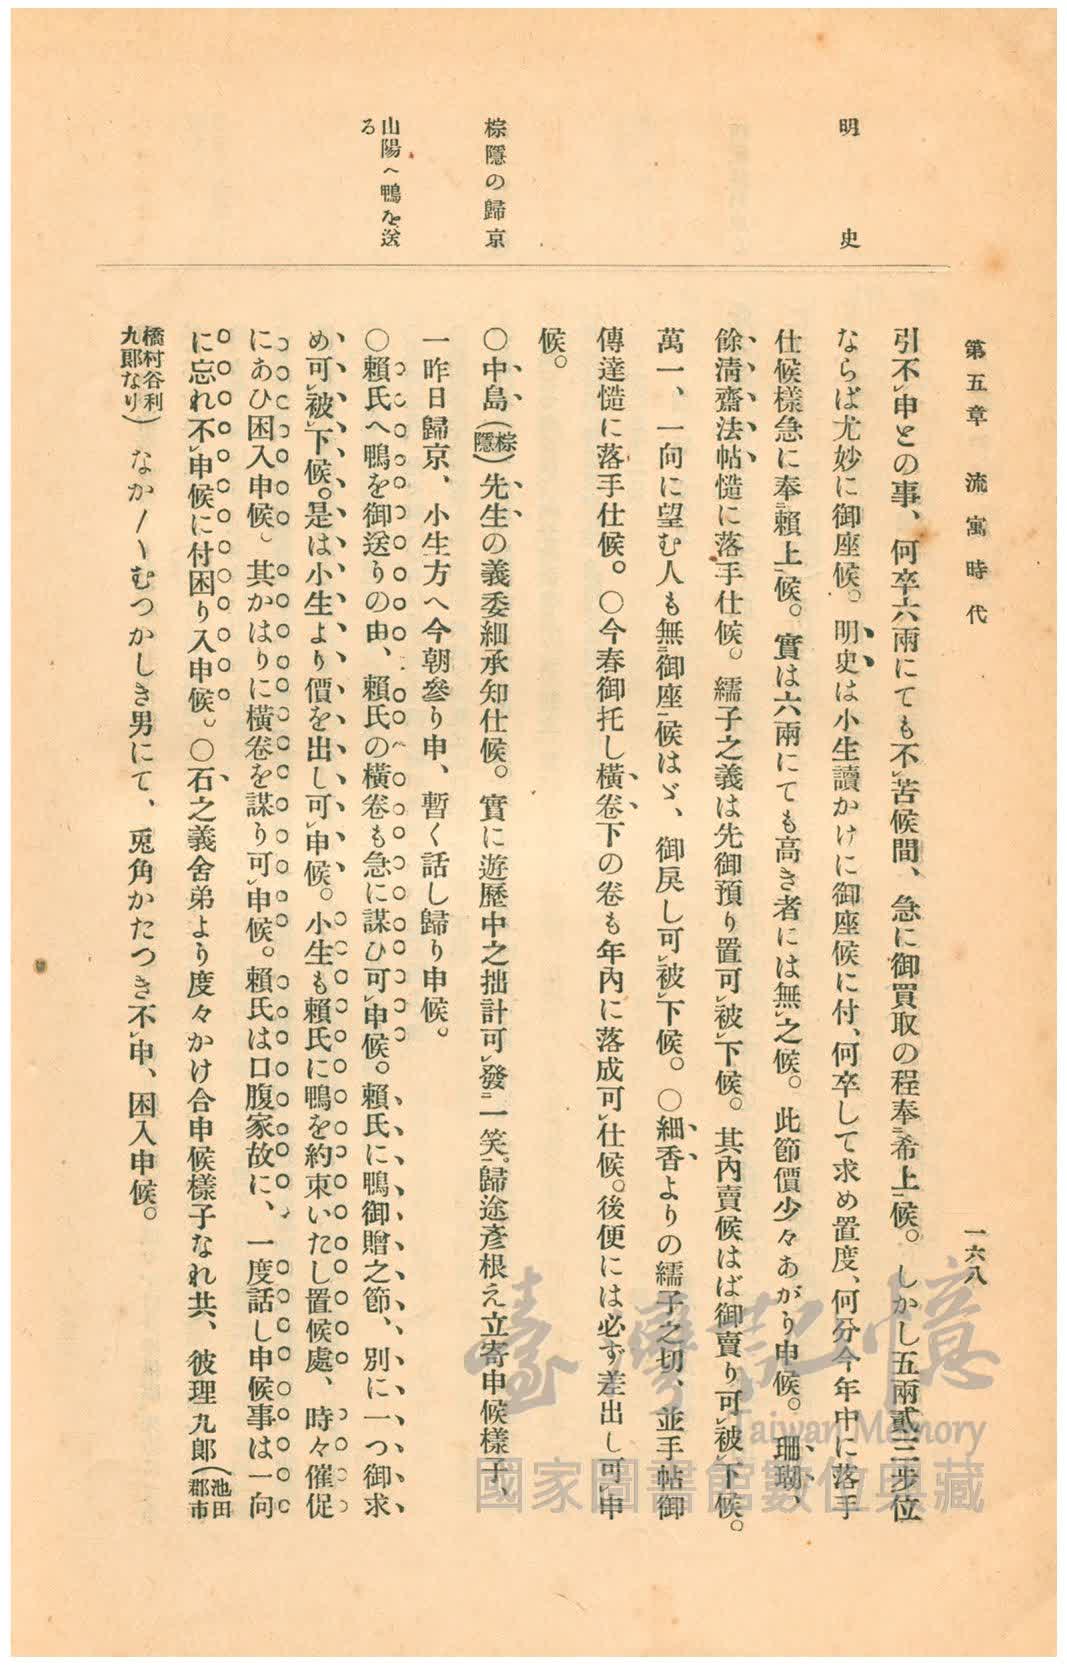 第五章 流寓時代
一六八
明史
棕隱の歸京
山陽へ鴨を送
る
引不レ申との事、何卒六兩にても不レ苦候間、急に御買取の程奉二希上一候。しかし五兩貳三步位
ならば尤妙に御座候。明史は小生讀かけに御座候に付、何卒して求め置度、何分今年中に落手
仕候樣急に奉二賴上一候。實は六兩にても高き者には無レ之候。此節價少々あがり申候。珊瑚、
餘淸齋法帖慥に落手仕候。繻子之義は先御預り置可レ被レ下候。其內賣候はば御賣り可レ被レ下候。
萬一、一向に望む人も無二御座一候はゞ、御戾し可レ被レ下候。〇細香よりの繻子之切、並手帖御
傳達慥に落手仕候。〇今春御托し橫卷下の卷も年內に落成可レ仕候。後便には必ず差出し可レ申
候。
〇中島(棕隱)先生の義委細承知仕候。實に遊歷中之拙計可レ發二一笑一。歸途彥根え立寄申候樣子、
一昨日歸京、小生方へ今朝參り申、暫く話し歸り申候。
〇賴氏へ鴨を御送りの由、賴氏の橫卷も急に謀ひ可レ申候。賴氏に鴨御贈之節、別に一つ御求
め可レ被レ下候。是は小生より價を出し可レ申候。小生も賴氏に鴨を約束いたし置候處、時々催促
にあひ困入申候。其かはりに橫卷を謀り可レ申候。賴氏は口腹家故に、一度話し申候事は一向
に忘れ不レ申候に付困り入申候。〇石之義舍弟より度々かけ合申候樣子なれ共、彼理九郎(池田郡市
橋村谷利九郎なり)なか〱むつかしき男にて、兎角かたつき不レ申、困入申候。
臺灣記憶
Taiwan Memory
國家圖書館數位典藏